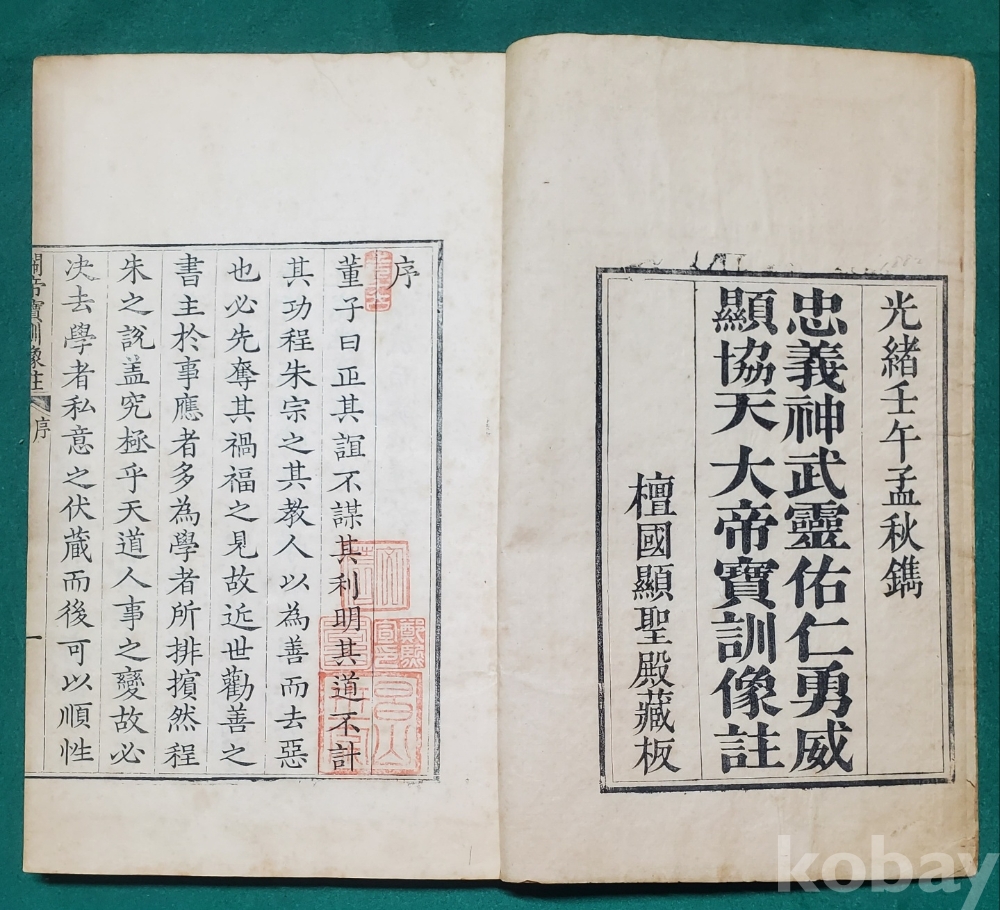 光緒壬午孟秋鐫
忠義神武靈佑仁勇威
顯協天大帝寶訓像註
檀國顯聖殿藏板
序
董子曰正其誼不謀其利明其道不計
其功程朱宗之其教人以為善而去惡
也必先奪其禍福之見故近世勸善之
書主於事應者多為學者所排擯然程
朱之說盖究極乎天道人事之變故必
决去學者私意之伏蔵而後可以順性
寶訓像註
序
一
kobay